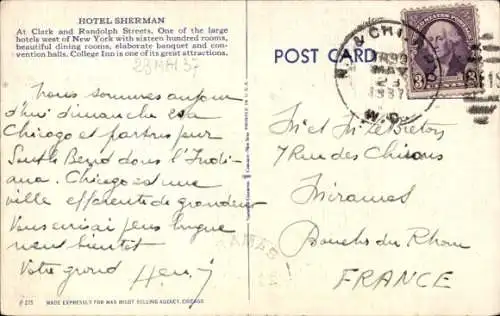 HOTEL SHERMAN
At Clark and Randolph Streets. One of the large
hotels west of New York with sixteen hundred rooms,
beautiful dining rooms, elaborate banquet and con-
vention halls. College Inn is one of its great attractions.
23 MAI 37
Nous sommes aujour
d'hui dimanche à
Chicago et partons pour
South Bend dans l'Indi-
ana. Chicago est une
ville de grandeur
Vous écrirai plus longue
ment bientôt
Votre grand Henry
P 275 MADE EXPRESSLY FOR MAX RIGOT SELLING AGENCY, CHICAGO
POST CARD
& CHI
MAY
23
1937
UNITED STATES POSTAGE
3 CENTS 3
M et Me Bretov
7 Rue des
Miramas
Bouches du Rhone
FRANCE